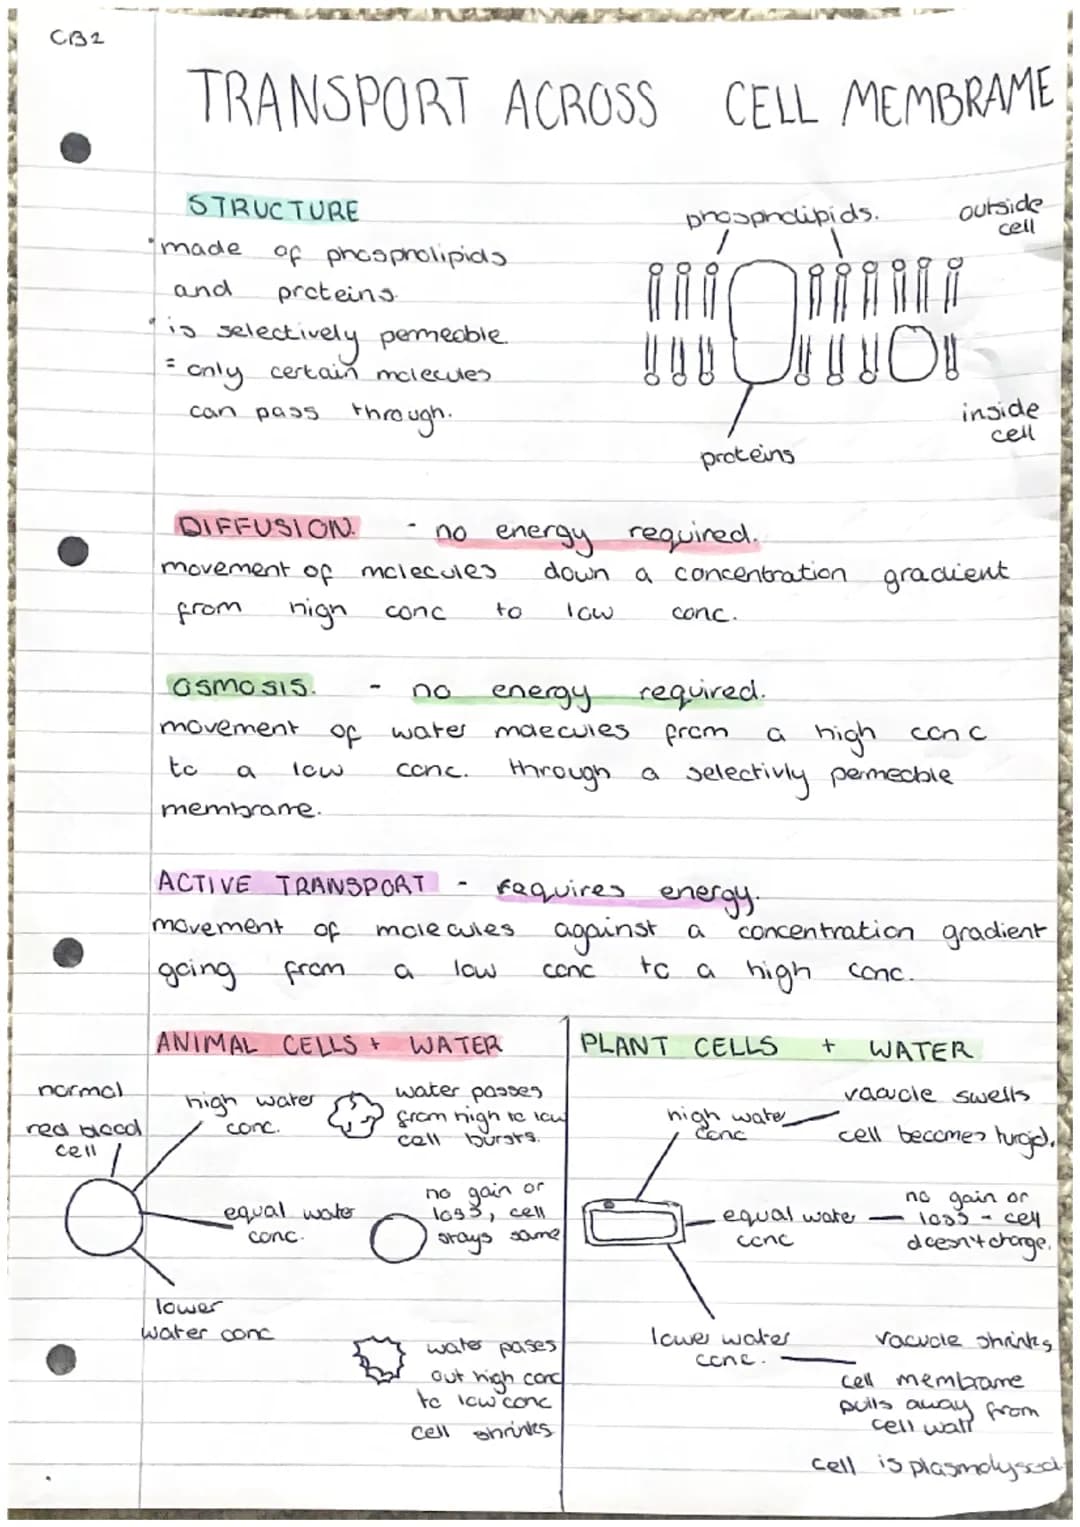 CB2
TRANSPORT ACROSS CELL MEMBRAME
STRUCTURE
made of phospholipids
and proteins.
is selectively permeable.
= only certain molecules
can pass through.
phospholipids.
outside
cell
inside
cell
proteins
DIFFUSION. - no energy required.
movement of molecules down a concentration gradient
from high conc to low conc.
OSMOSIS. - no energy required.
movement of water maecules from a high conc
to a low conc. through a selectivly permeable
membrane.
ACTIVE TRANSPORT - requires energy.
movement of molecules against a concentration gradient
going from a low conc to a high conc.
ANIMAL CELLS + WATER
normal
red blood
cell
high water
conc.
water passes
from high to low
cell bursts.
equal water
conc.
no gain or
loss, cell
stays same
lower
water conc
water pases
out high conc
to low conc
cell shrinks
PLANT CELLS + WATER
high water
conc
vacuole swells
cell becomes turgid.
equal water
conc
no gain or
loss - cell
doesn't change.
lower water
conc.
vacuole shrinks
cell membrane
pulls away from
cell wall
cell is plasmolysed